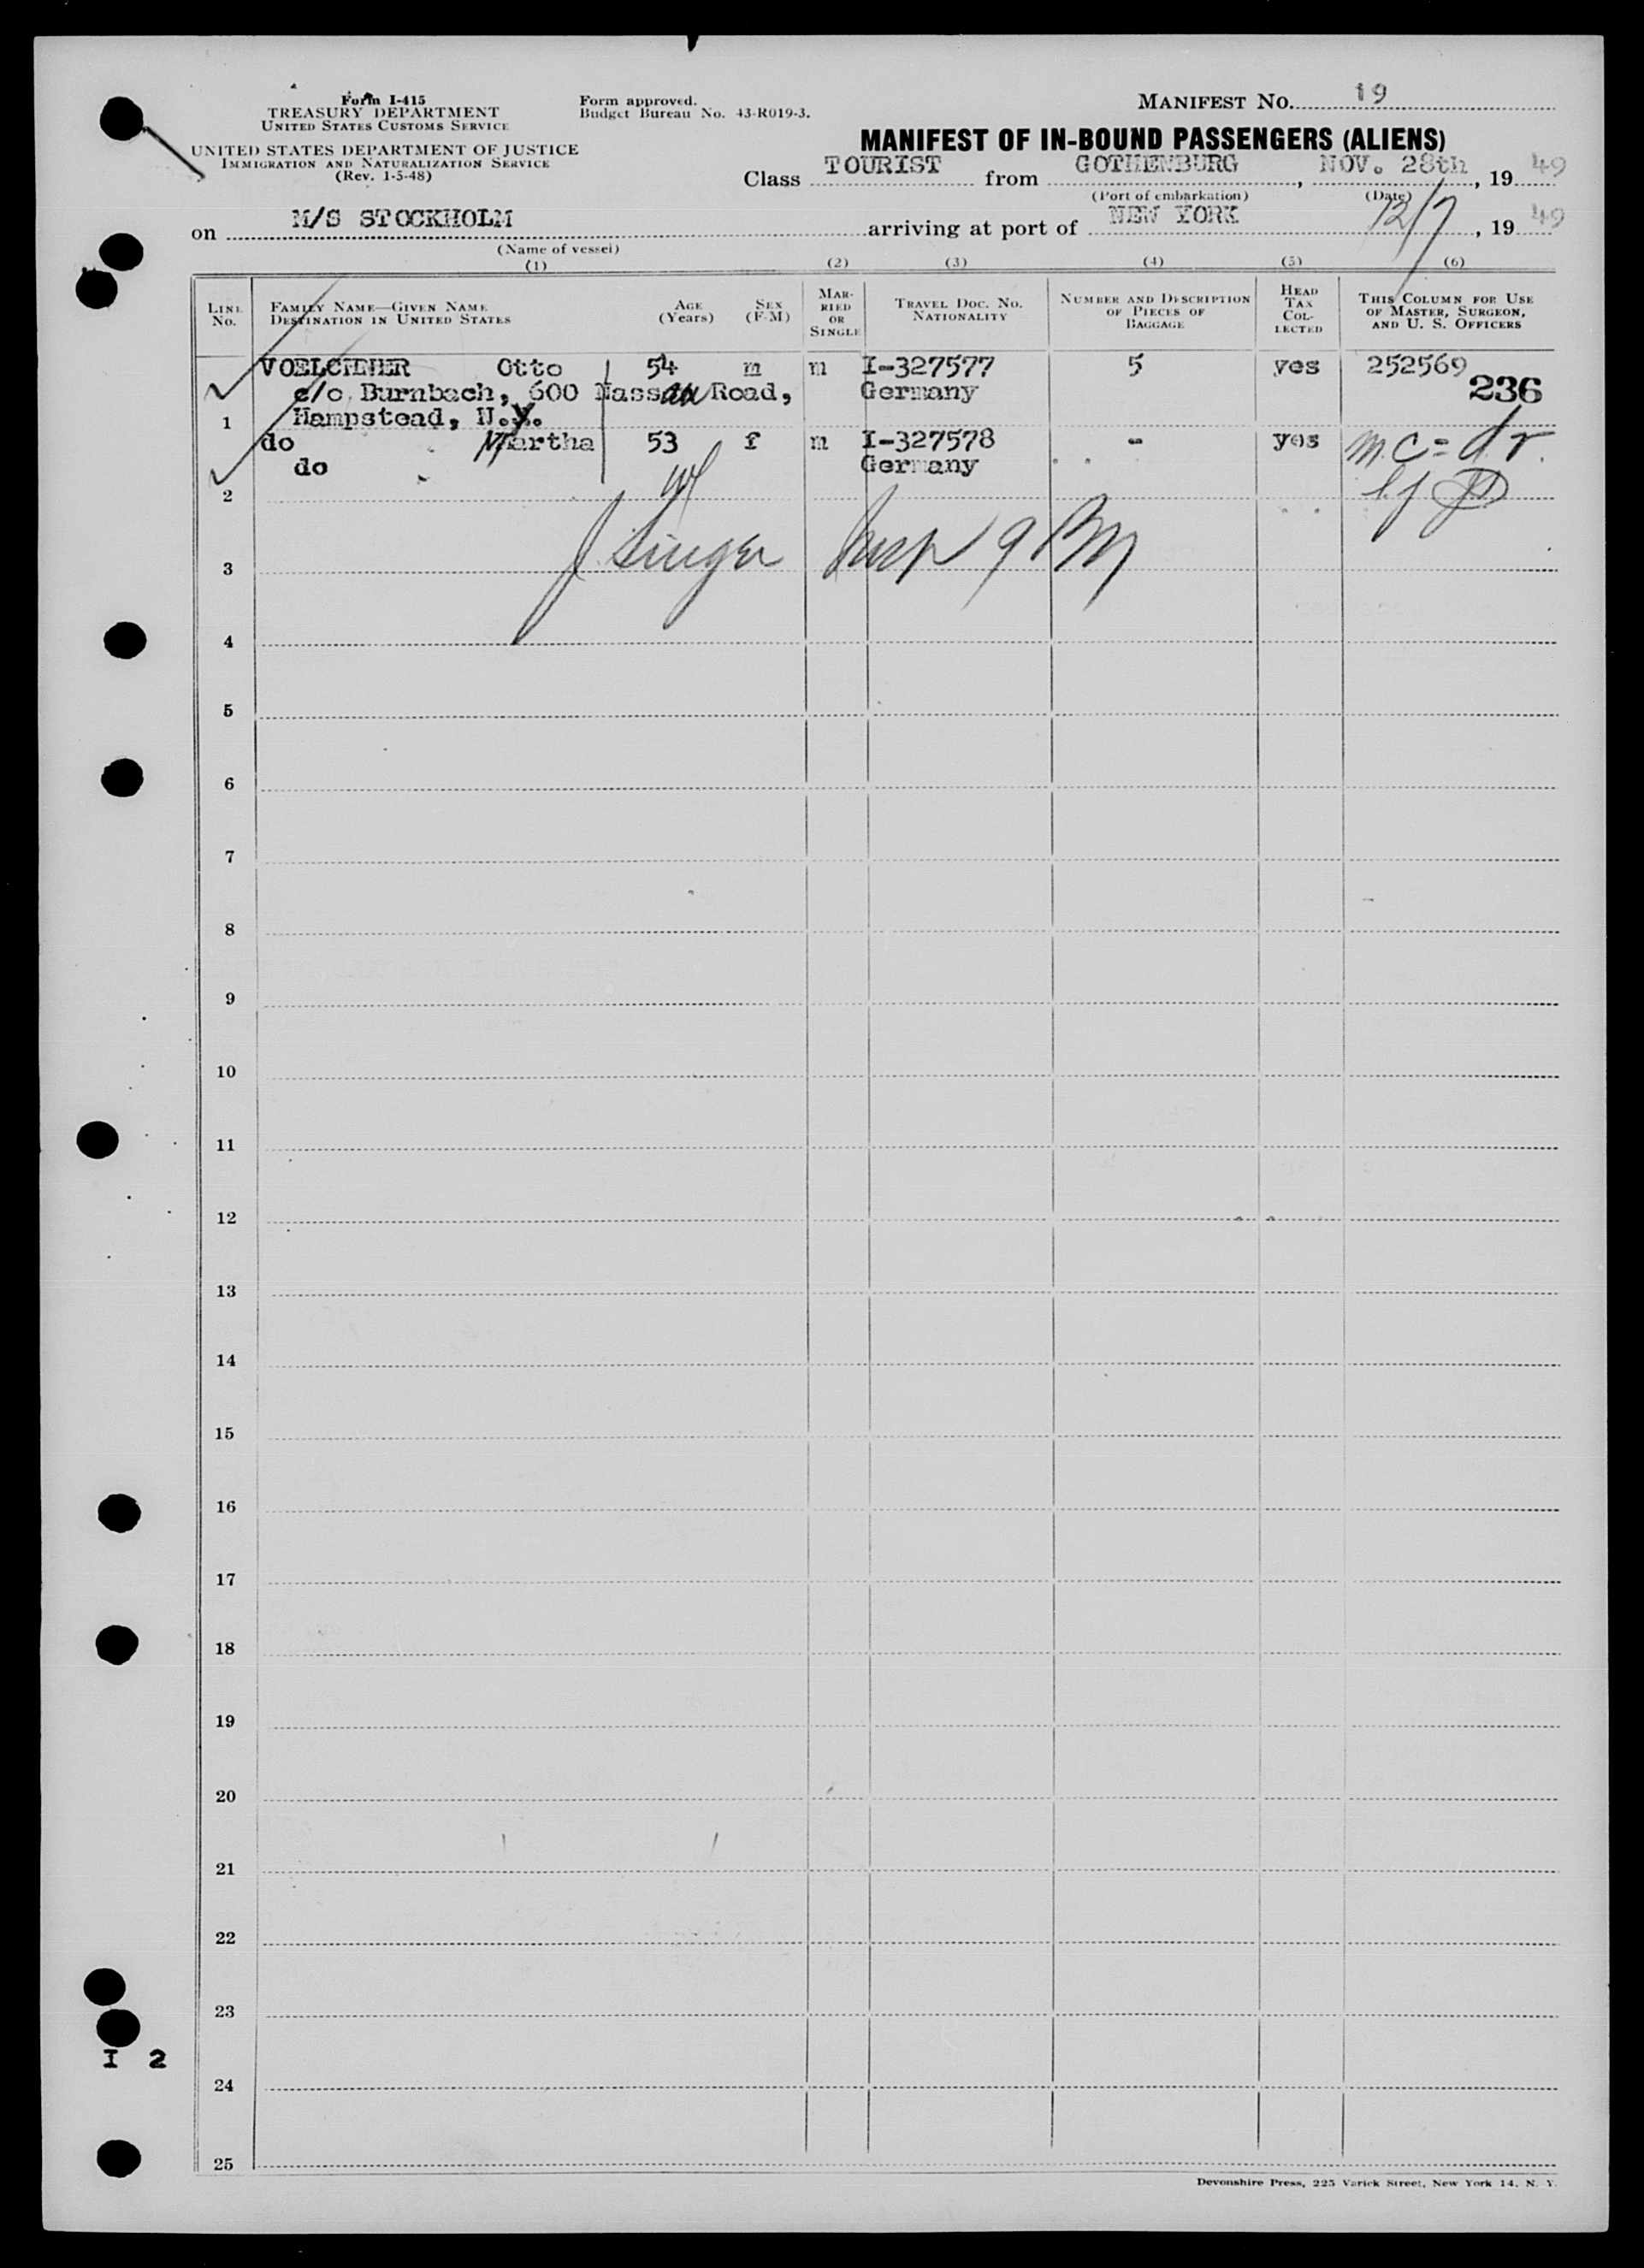 Form I-415
TREASURY DEPARTMENT
UNITED STATES CUSTOMS SERVICE
UNITED STATES DEPARTMENT OF JUSTICE
IMMIGRATION AND NATURALIZATION SERVICE
(Rev. 1-5-48)
Form approved.
Budget Bureau No. 43-R019-3.
MANIFEST NO. 19
MANIFEST OF IN-BOUND PASSENGERS (ALIENS)
Class TOURIST from GOTHENBURG, NOV. 28th, 1949
(Port of embarkation) (Date)
on M/S STOCKHOLM arriving at port of NEW YORK 12/7, 1949
(Name of vessel)
(1) (2) (3) (4) (5) (6)
LINE No. FAMILY NAME—GIVEN NAME DESTINATION IN UNITED STATES AGE (Years) SEX (F-M) MARRIED OR SINGLE TRAVEL DOC. NO. NATIONALITY NUMBER AND DESCRIPTION OF PIECES OF BAGGAGE HEAD TAX COLLECTED THIS COLUMN FOR USE OF MASTER, SURGEON, AND U. S. OFFICERS
Otto 54 m m I-327577 5 yes 252569
c/o Burnbach, 600 Nassau Road, Germany 236
1 Hempstead, N.Y.
do Martha 53 f m I-327578 - yes
do Germany
2
J Singer
3
4
5
6
7
8
9
10
11
12
13
14
15
16
17
18
19
20
21
22
23
I 2
24
25
Devonshire Press, 225 Varick Street, New York 14, N. Y.